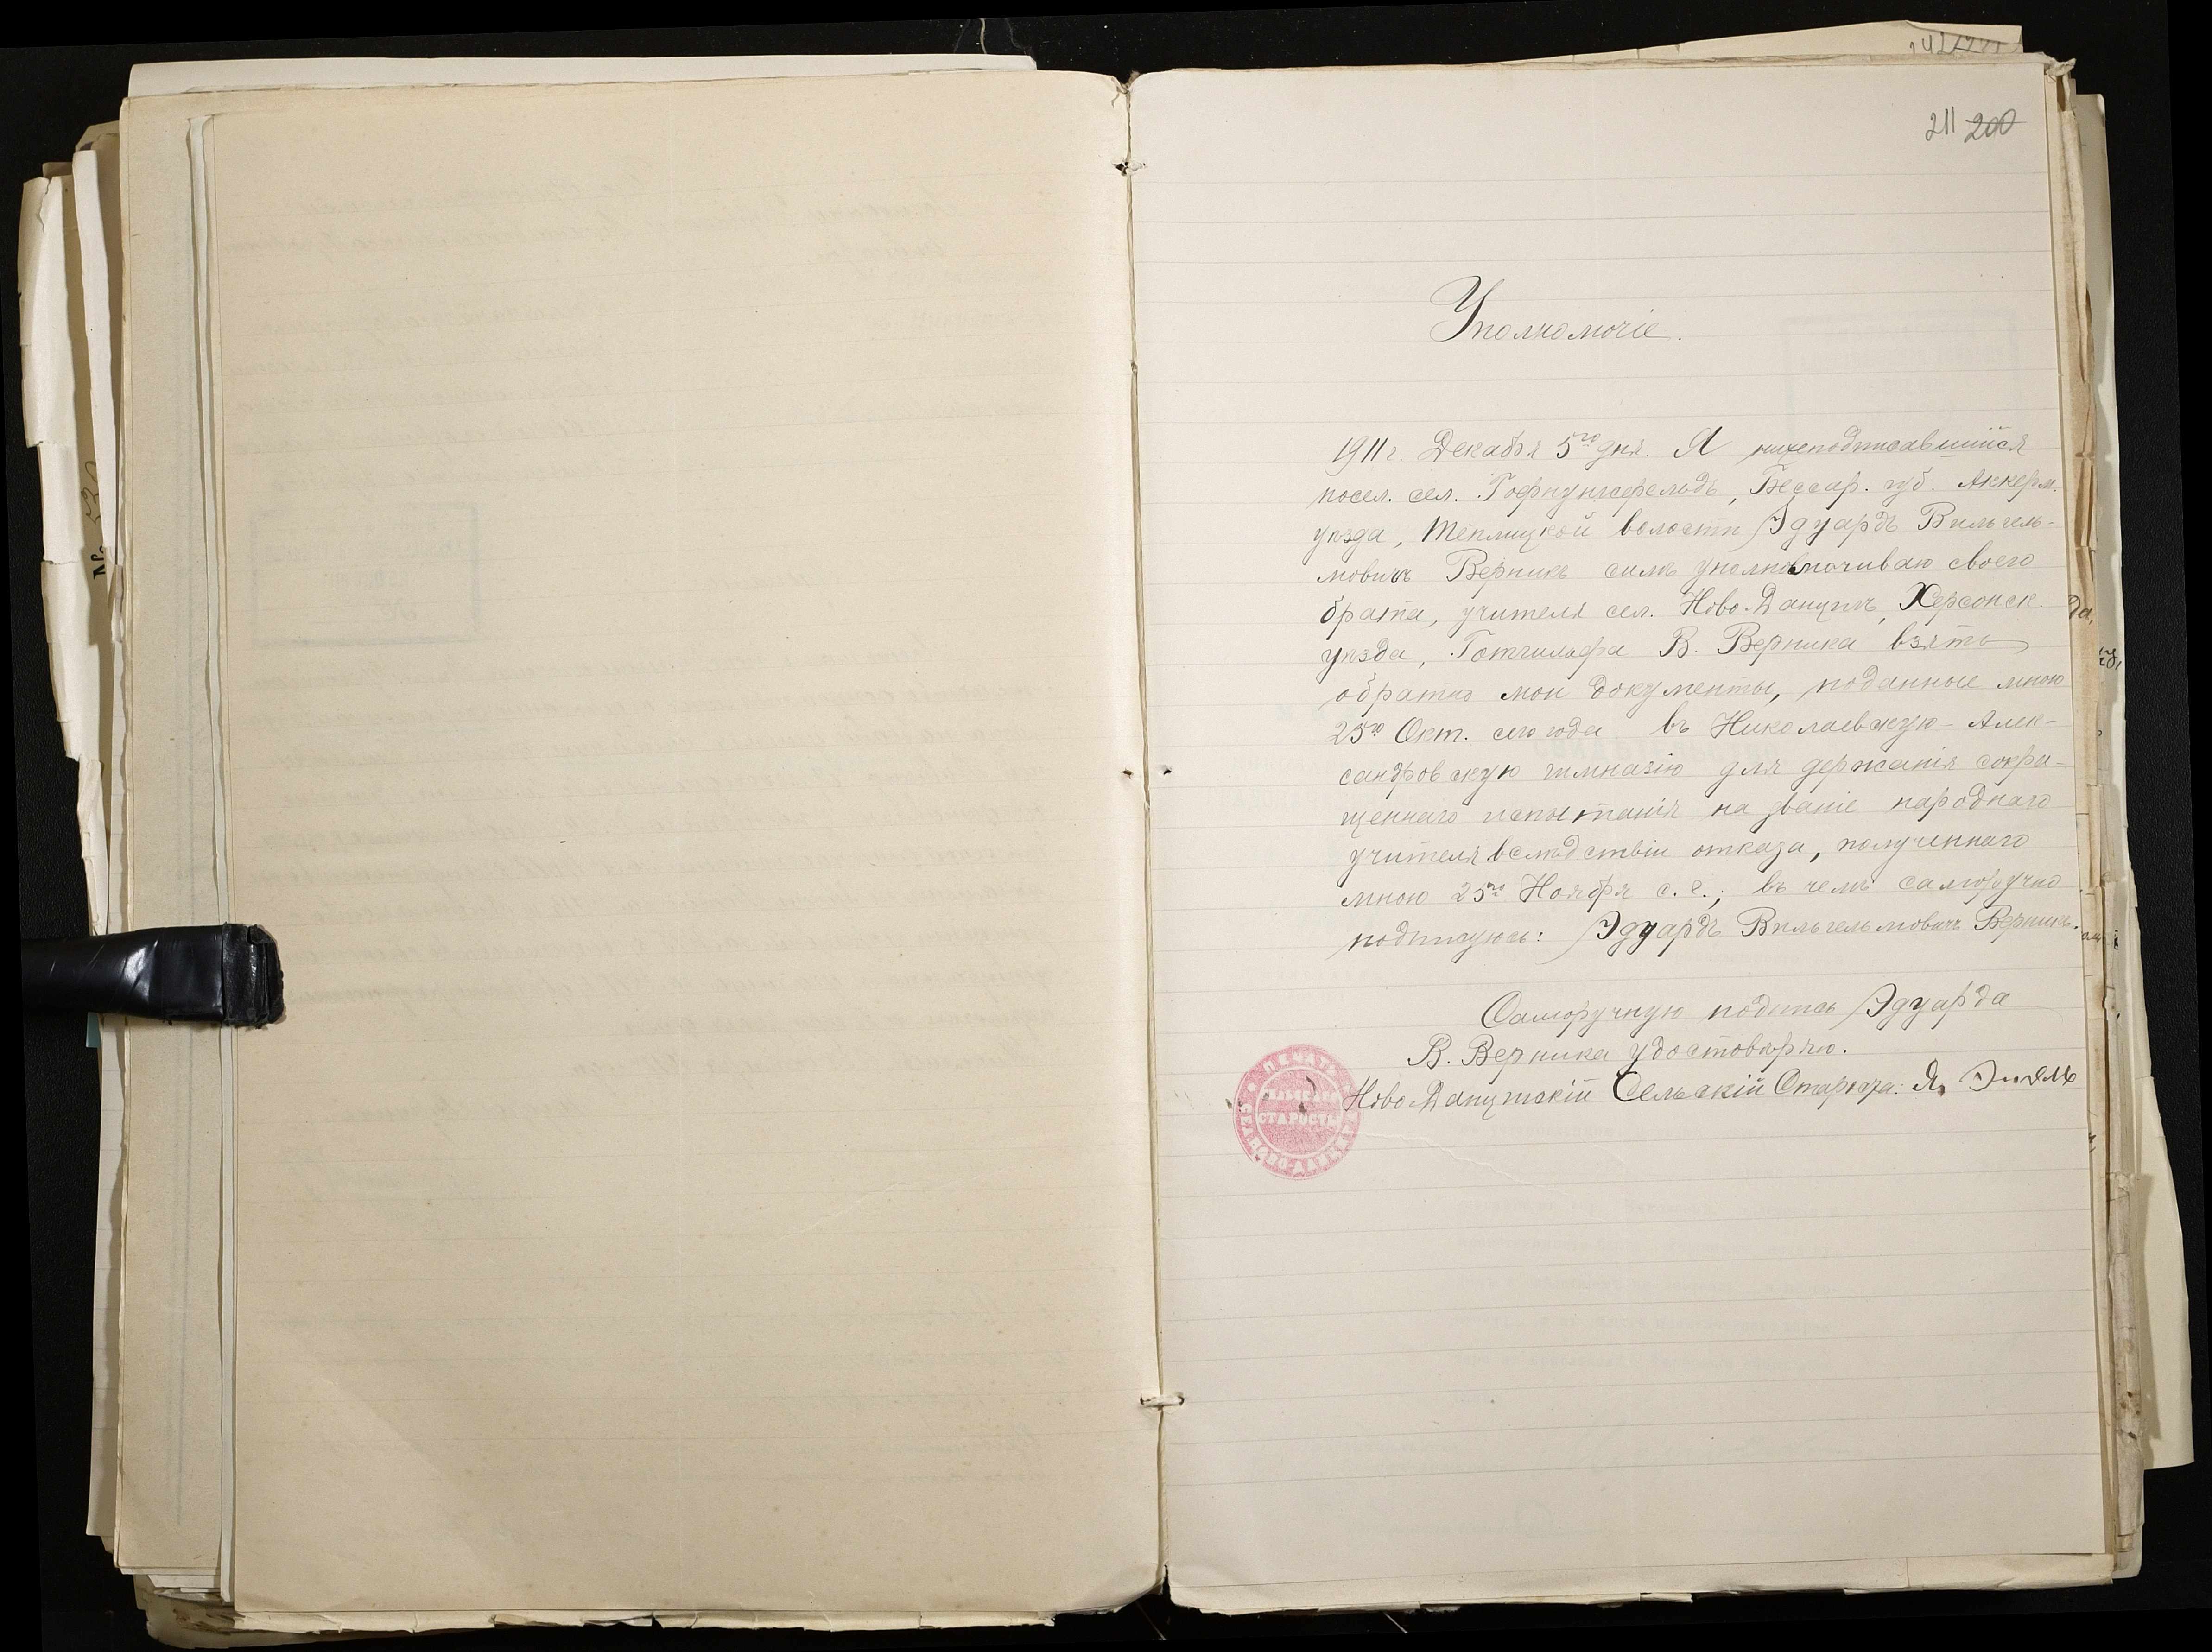 211 200
Уполномочіе.
1911 г. Декабря 5го дня. Я нижеподписавшийся
посел. сел. Гофнунгсфельдъ, Бессар. губ. Аккерм.
уѣзда, Теплицкой волости Эдуардъ Вильгель-
мовичъ Верникъ симъ уполномочиваю своего
брата, учителя сел. Ново-Данцигъ, Херсонск.
уѣзда, Готгильфа В. Верника взять
обратно мои документы, поданные мною
25го Окт. сего года въ Николаевскую-Алек-
сандровскую гимназію для держанія сокра-
щеннаго испытанія на званіе народнаго
учителя вслѣдствіи отказа, полученнаго
мною 25го Ноября с. г.; въ чемъ саморучно
подписуюсь: Эдуардъ Вильгельмовичъ Верникъ.
Саморучную подпись Эдуарда
В. Верника удостовѣряю.
Ново-Данцигскій Сельскій Староста: Я.
ПЕЧАТЬ
СТАРОСТЫ